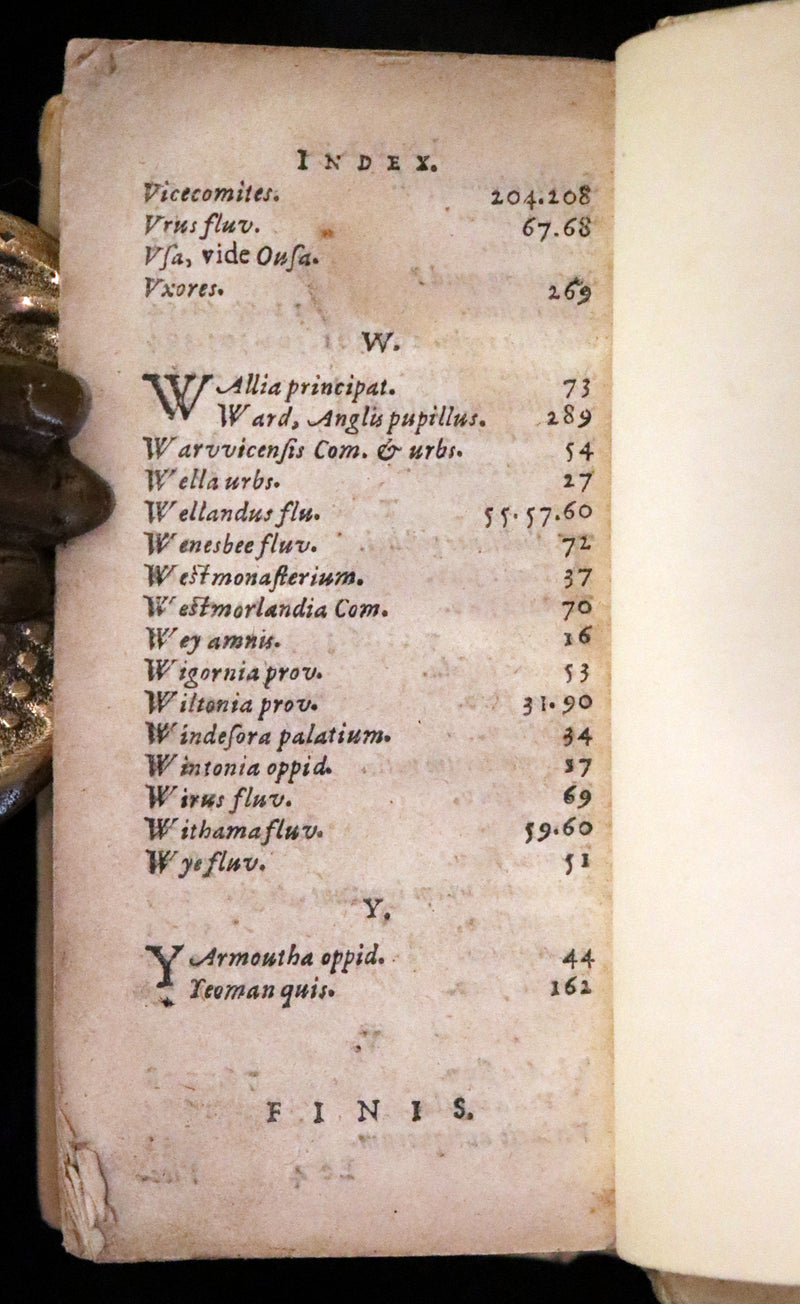 INDEX.
Vicecomites. 204.208
Vrus fluv. 67.68
Vſa, vide Ouſa.
Vxores. 269
W.
WAllia principat. 73
Ward, Anglis pupillus. 289
Warvvicenſis Com. & urbs. 54
Wella urbs. 27
Wellandus flu. 55.57.60
Wenesbee fluv. 72
Weſtmonaſterium. 37
Weſtmorlandia Com. 70
Wey amnis. 16
Wigornia prov. 53
Wiltonia prov. 31.90
Windeſora palatium. 34
Wintonia oppid. 37
Wirus fluv. 69
Withama fluv. 59.60
Wye fluv. 51
Y.
YArmoutha oppid. 44
Yeoman quis. 162
FINIS.